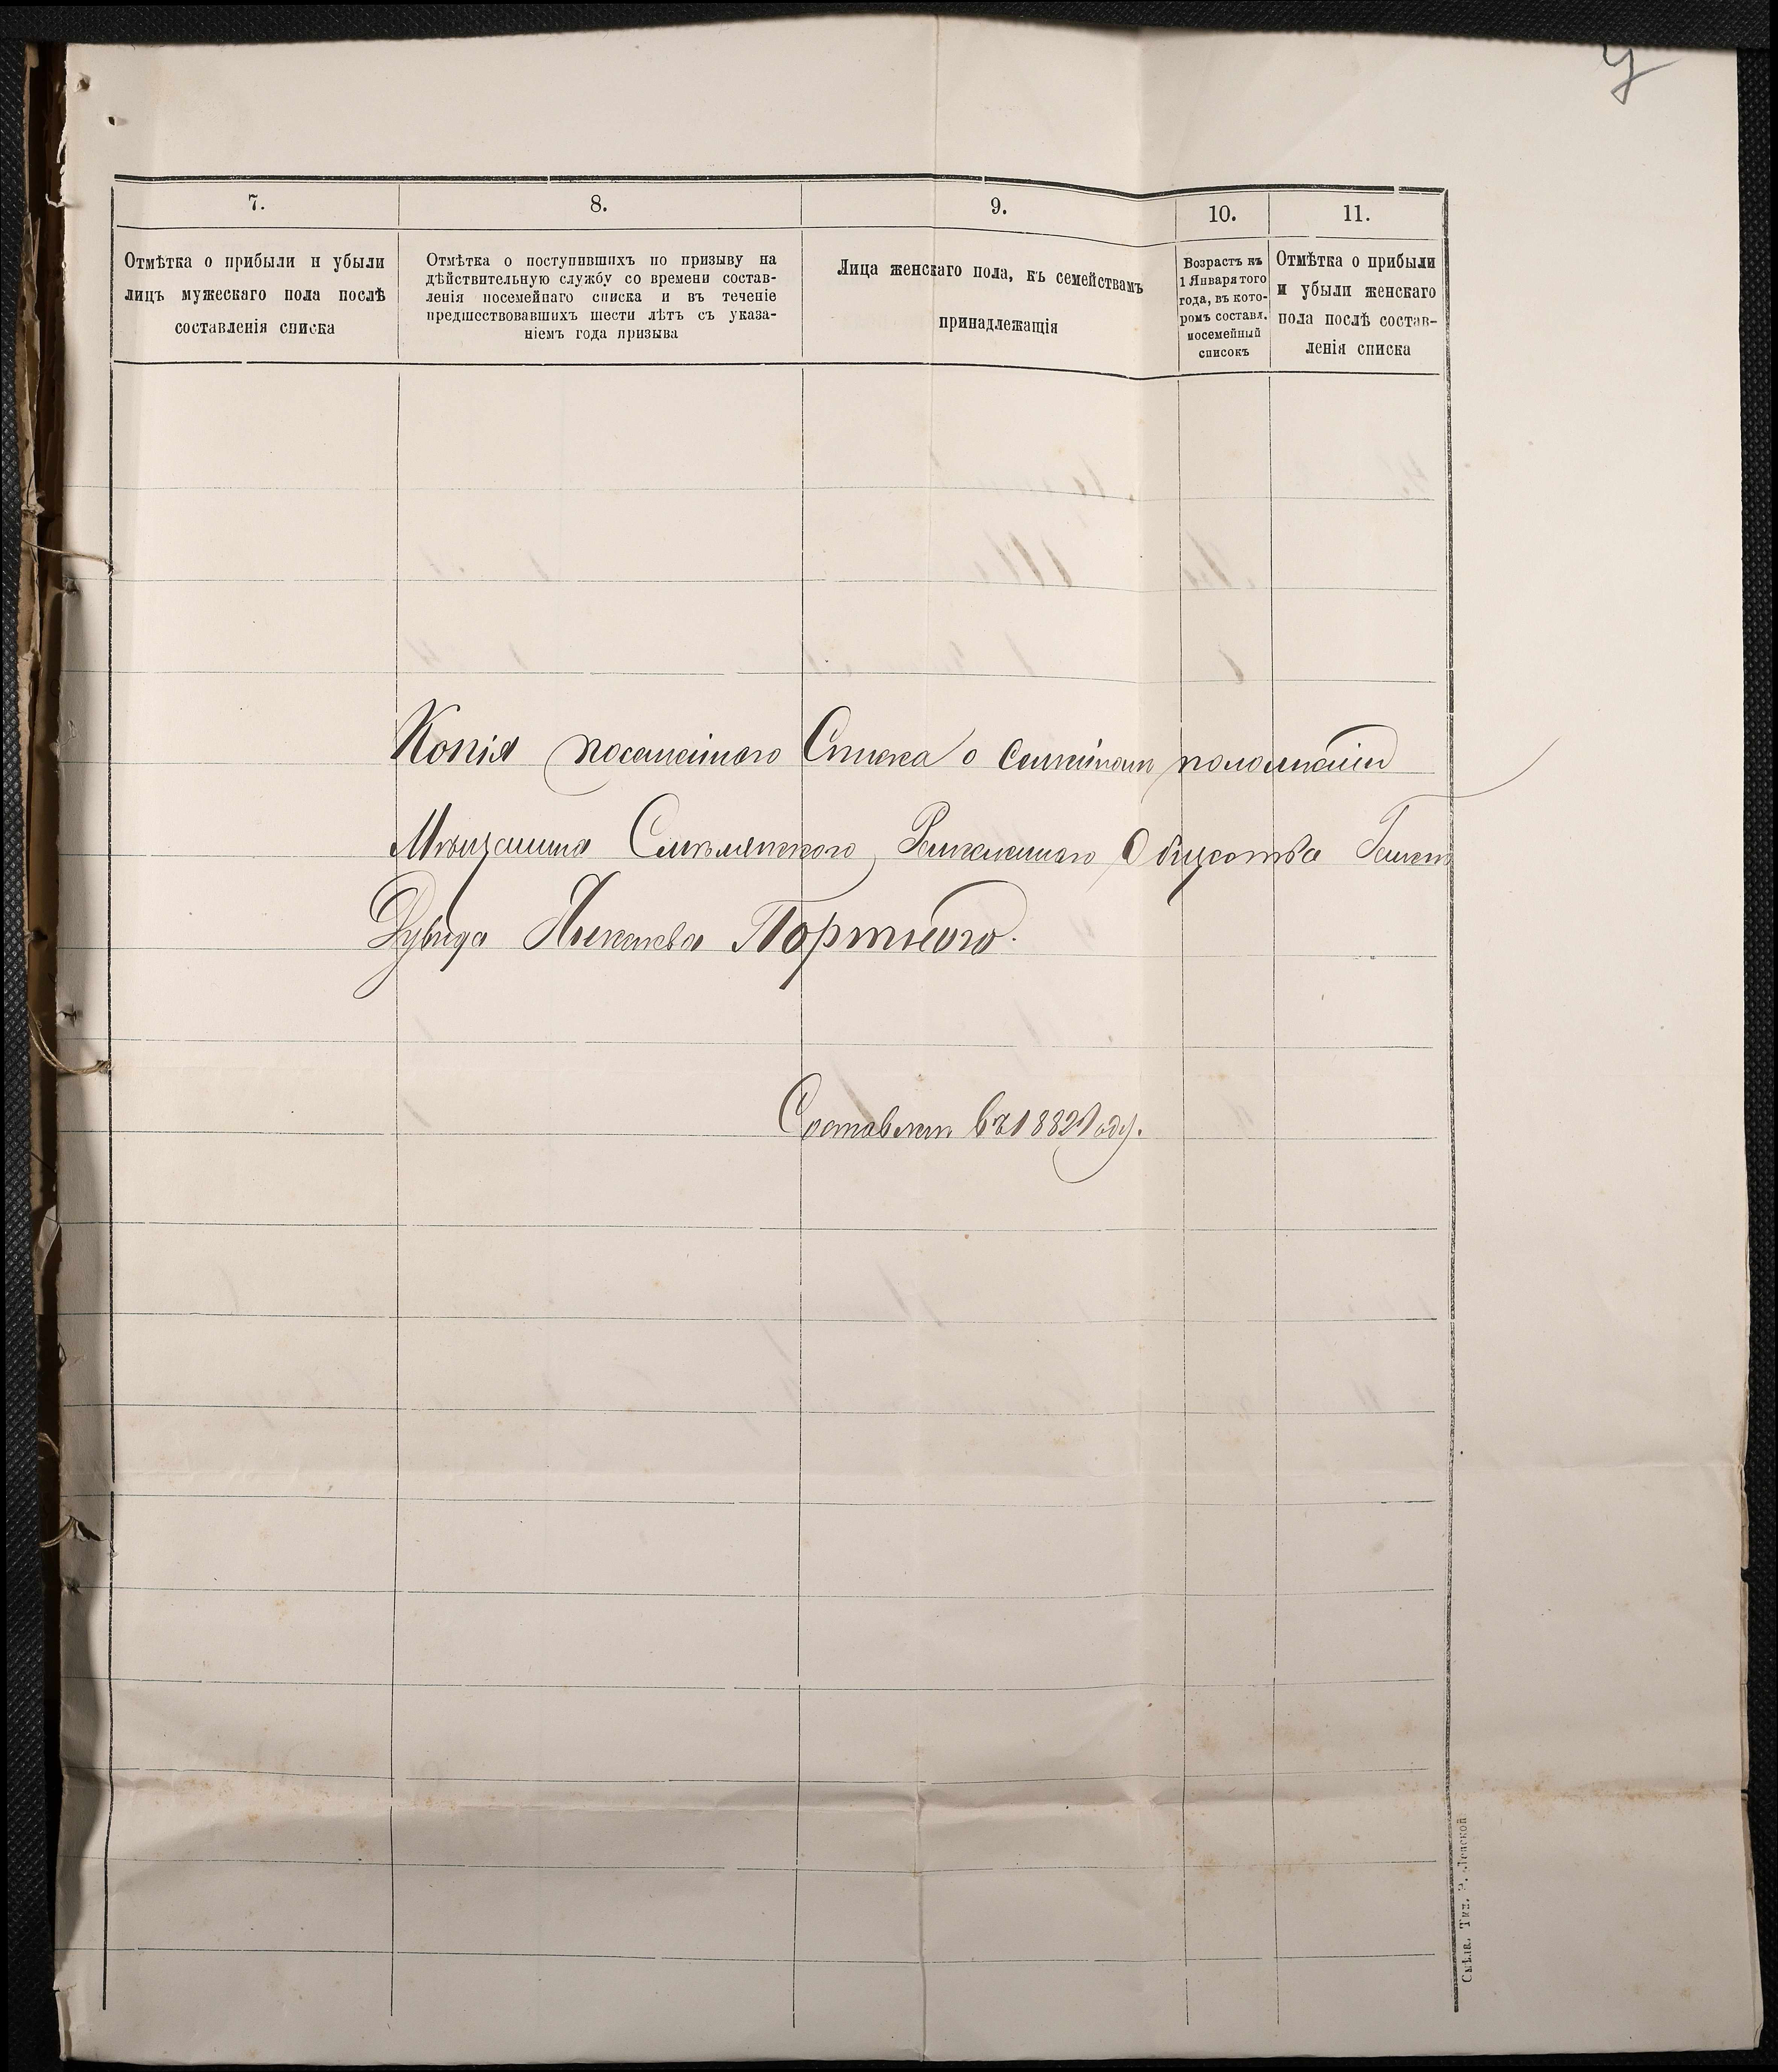 7.
8.
9.
10.
11.
Отмѣтка о прибыли и убыли
лицъ мужескаго пола послѣ
составленія списка
Отмѣтка о поступившихъ по призыву на
дѣйствительную службу со времени состав-
ленія посемейнаго списка и въ теченіе
предшествовавшихъ шести лѣтъ съ указа-
ніемъ года призыва
Лица женскаго пола, къ семействамъ
принадлежащія
Возрастъ къ
1 Января того
года, въ кото-
ромъ составл.
посемейный
списокъ
Отмѣтка о прибыли
и убыли женскаго
пола послѣ состав-
ленія списка
Копія посемейнаго Списка о Семейномъ положеніи
Мѣщанина Смѣлянского Общества
Портного.
Составленъ въ 1882 году.
Смѣла. Тип.